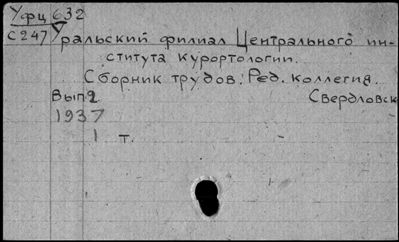 Уфц 632
С247 Уральский филиал Центрального ин-
ститута курортологии.
Сборник трудов. Ред. коллегия.
Вып. 2 Свердловск
1937
1 т.